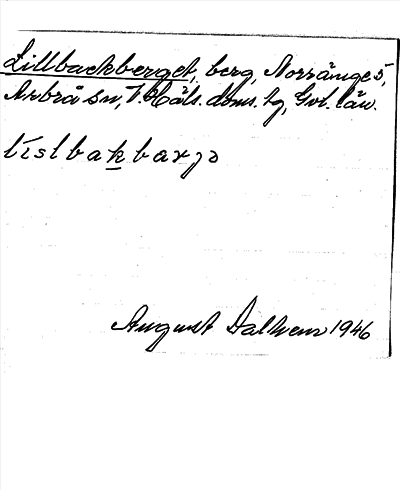 Lillbackberget, berg, Norränge 5,
Arbrå sn, V. Häls. doms. tg, Gvl. län.
lislbakbarjə
August Dalhem 1946